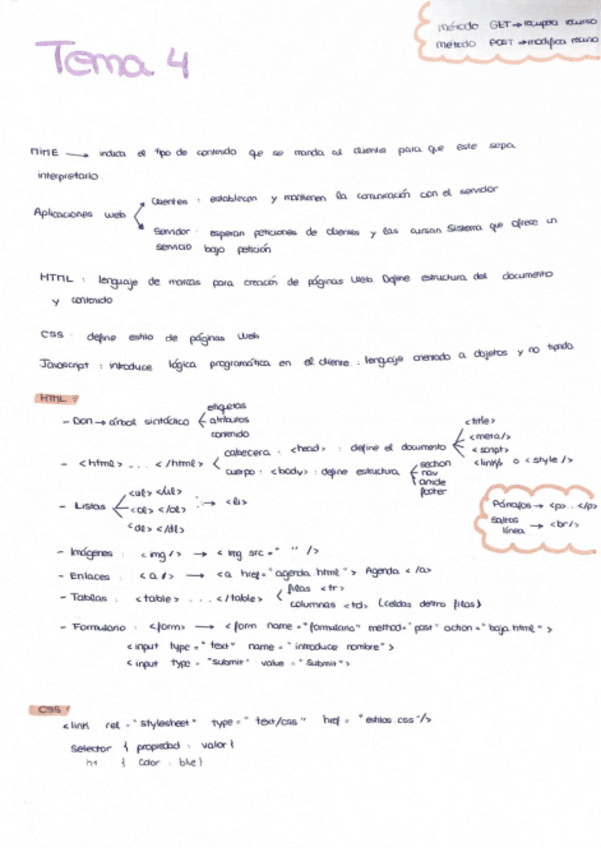 método GET → recupera recurso
método POST → modifica recurso
Tema 4
MIME → indica el tipo de contenido que se manda al cliente para que este sepa
interpretarlo.
Aplicaciones web
Clientes : establecen y mantienen la comunicación con el servidor
Servidor : esperan peticiones de clientes y las cursan Sistema que ofrece un
servicio bajo petición
HTML : lenguaje de marcas para creación de páginas Web. Define estructura del documento
y contenido
CSS : define estilo de páginas Web
Javascript : introduce lógica programática en el cliente : lenguaje orientado a objetos y no tipado
HTML :
- DOM → árbol sintáctico
etiquetas
atributos
contenido
- <html> ... </html>
cabecera : <head> : define el documento
<title>
<meta/>
<script>
<link> o <style/>
cuerpo : <body> : define estructura
section
nav
article
footer
- Listas
<ul> </ul>
<ol> </ol>
<dl> </dl>
: → <li>
Párrafos → <p> .. </p>
Saltos línea → <br/>
- Imágenes : <img/> → <img src = " " />
- Enlaces : <a/> → <a href = "agenda html"> Agenda </a>
- Tablas : <table> ... </table>
filas <tr>
columnas <td> (celdas dentro filas)
- Formulario : <form> → <form name = "formulario" method= "post" action = "baja html">
<input type = "text" name = "introduce nombre">
<input type = "submit" value = "Submit">
CSS :
<link rel = "stylesheet" type = "text/css" href = "estilos.css"/>
Selector { propiedad : valor {
h1 { Color : blue }